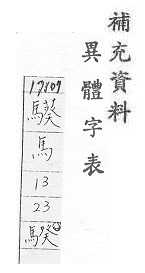 補充資料
異體字表
馬
13
23
騤